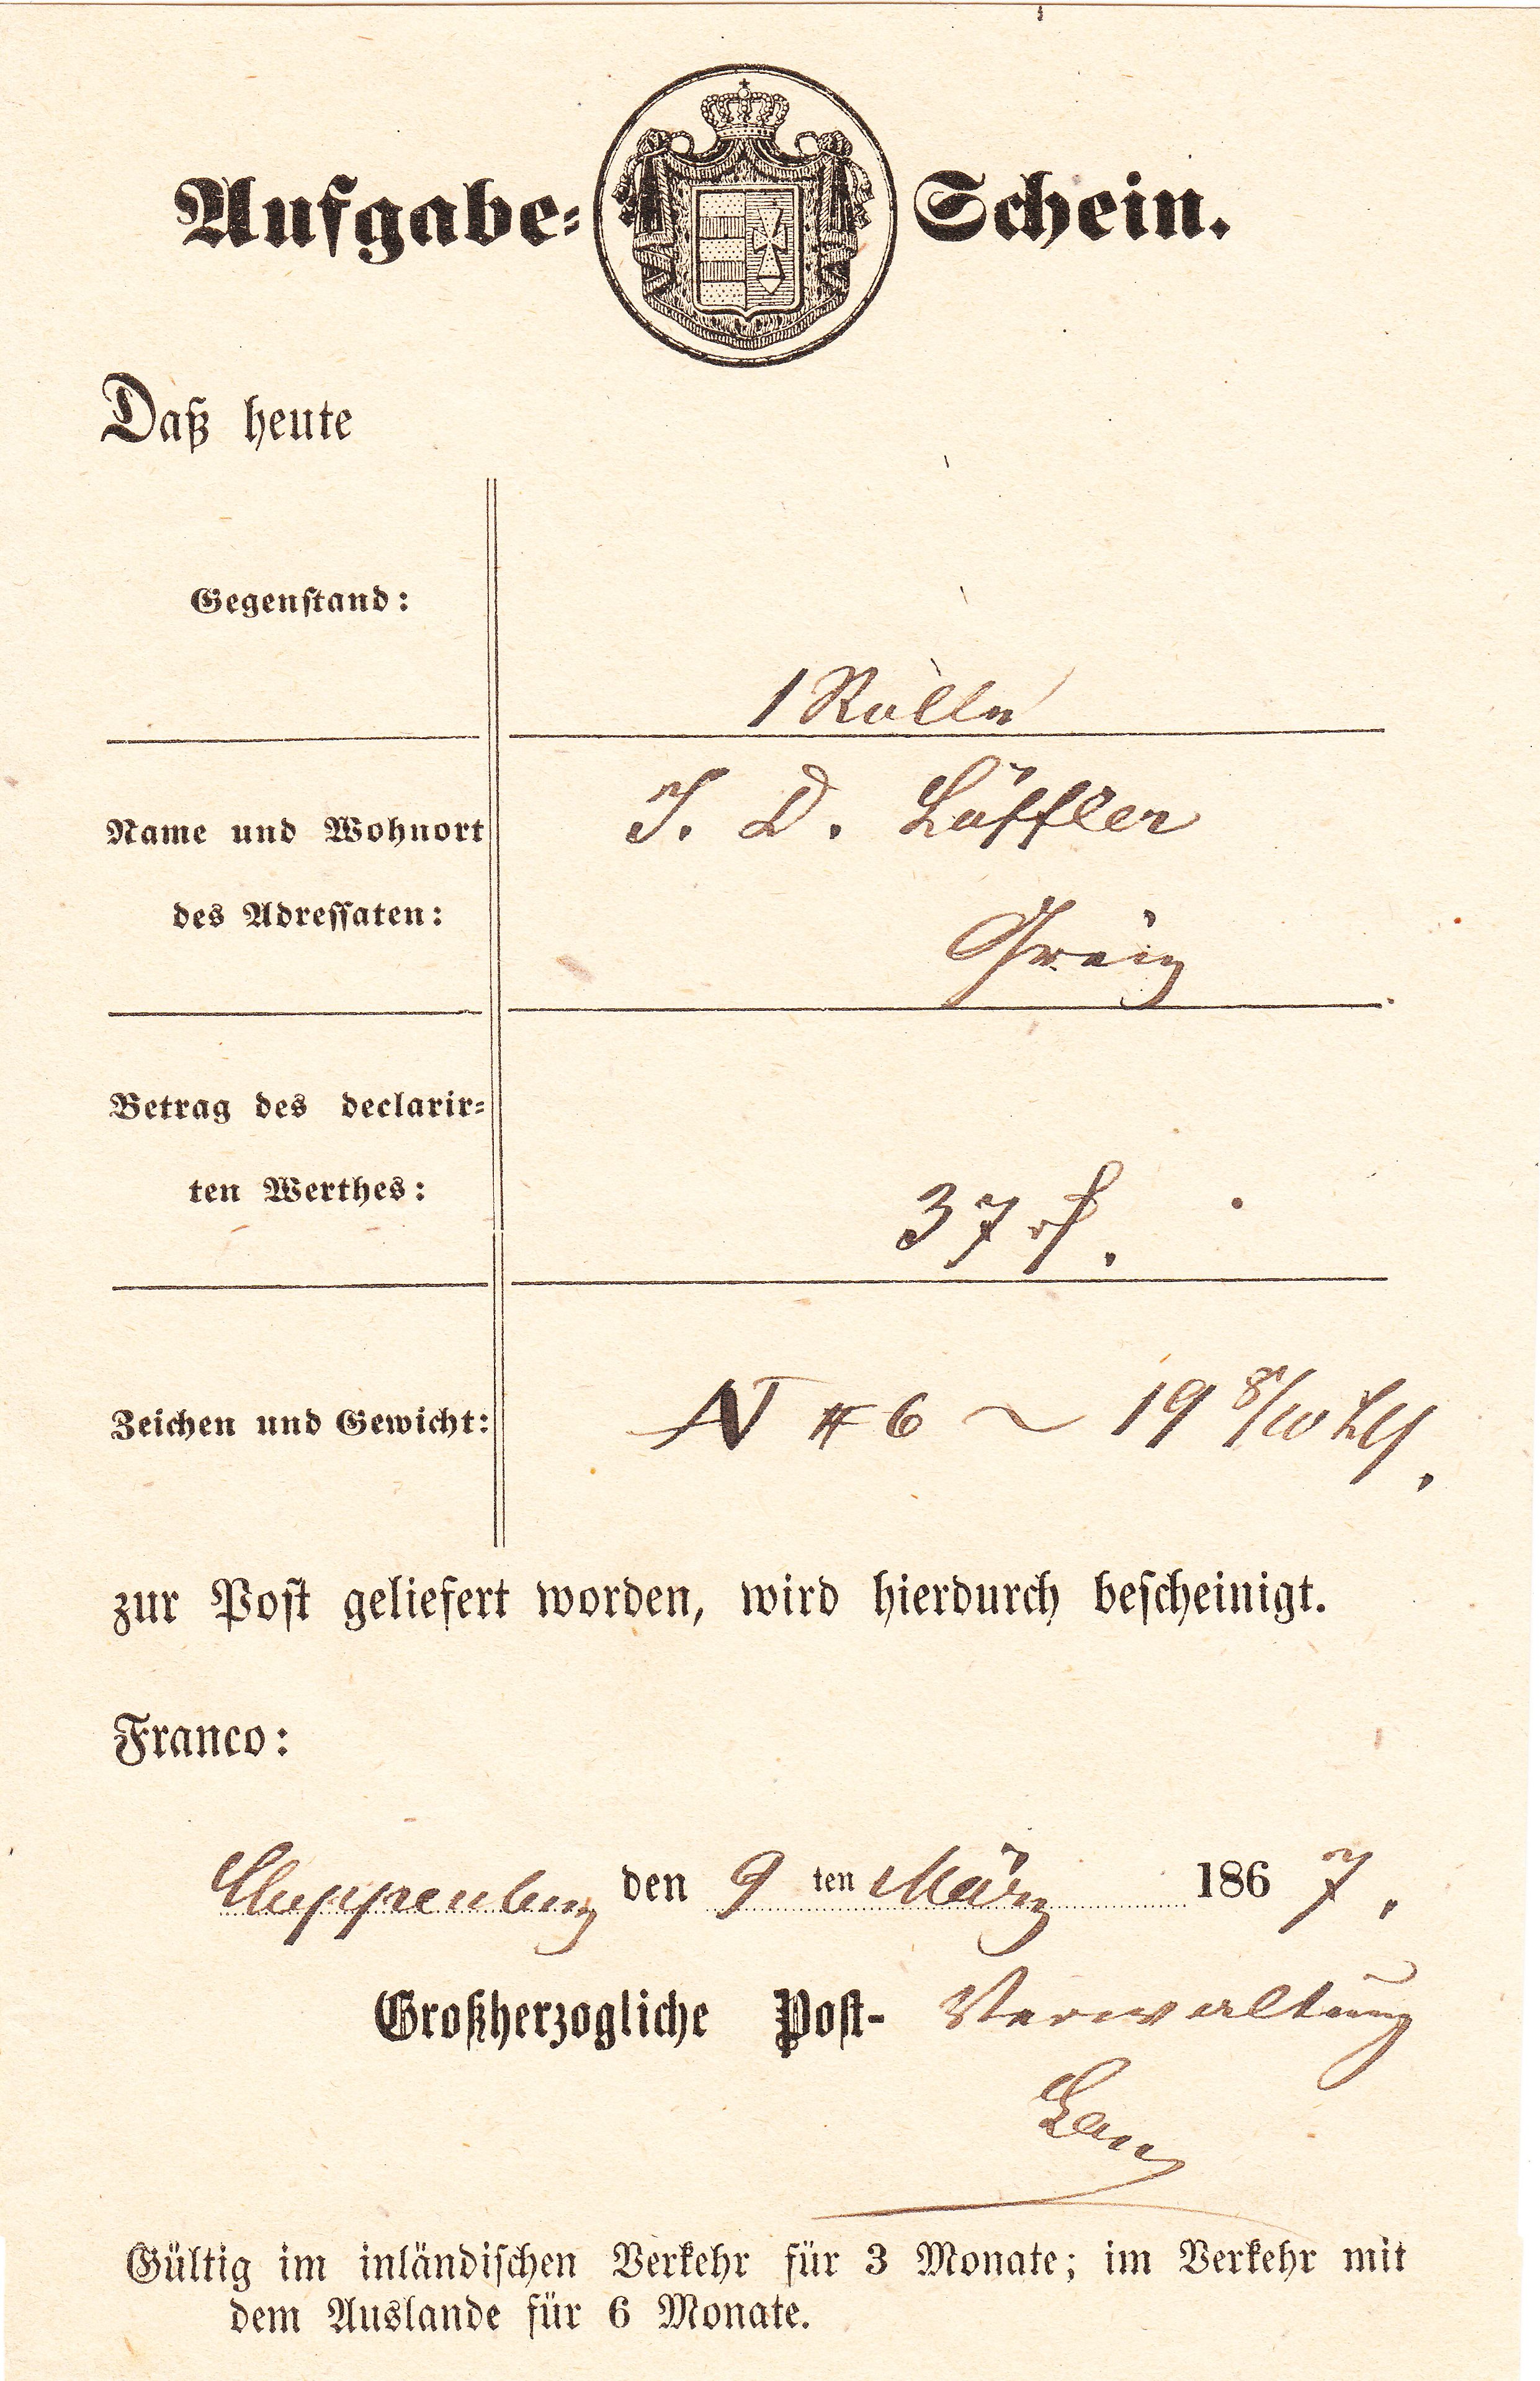 Aufgabe-Schein.
Daß heute
Gegenstand:
1 Rolle
Name und Wohnort
des Adressaten:
J. D. Löffler
Greiz
Betrag des declarir-
ten Werthes:
37 rf.
Zeichen und Gewicht:
N # 6 ~ 19 8/10
zur Post geliefert worden, wird hierdurch bescheinigt.
Franco:
Cloppenburg den 9 ten März 1867.
Großherzogliche Post-Verwaltung
Gültig im inländischen Verkehr für 3 Monate; im Verkehr mit
dem Auslande für 6 Monate.